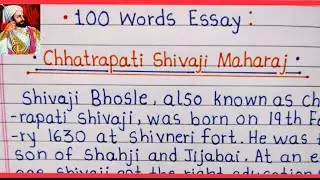 • 100 Words Essay :
• Chhatrapati Shivaji Maharaj •
Shivaji Bhosle, also known as ch
-rapati shivaji, was born on 19th Fe
-ry 1630 at shivneri fort. He was
son of Shahji and Jijabai. At an e
shivaji got the right education